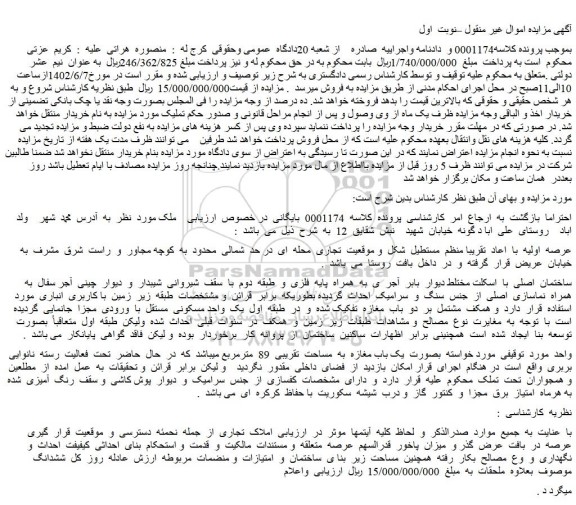 آگهی مزایده اموال غیر منقول –نوبت اول
بموجب پرونده کلاسه0001174 و دادنامه واجراییه صادره از شعبه 20دادگاه عمومی وحقوقی کرج له : منصوره هراتی علیه : کریم عزتی
محکوم است به پرداخت مبلغ 1/740/000/000ریال بابت محکوم به در حق محکوم له و نیز پرداخت مبلغ 246/362/825ریال به عنوان نیم عشر
دولتی .متعلق به محکوم علیه توقیف و توسط کارشناس رسمی دادگستری به شرح زیر توصیف و ارزیابی شده و مقرر است در مورخ1402/6/7ازساعت
10الی11صبح در محل اجرای احکام مدنی از طریق مزایده به فروش میرسد . مزایده از قیمت15/000/000/000 ریال طبق نظریه کارشناس شروع و به
هر شخص حقیقی و حقوقی که بالاترین قیمت را بدهد فروخته خواهد شد. ده درصد از وجه مزایده را فی المجلس بصورت وجه نقد یا چک بانکی تضمینی از
خریدار اخذ و الباقی وجه مزایده ظرف یک ماه از وی وصول و پس از انجام مراحل قانونی و صدور حکم تملیک مورد مزایده به نام خریدار منتقل خواهد
شد. در صورتی که در مهلت مقرر خریدار وجه مزایده را پرداخت ننماید سپرده وی پس از کسر هزینه های مزایده به نفع دولت ضبط و مزایده تجدید می
گردد. کلیه هزینه های نقل وانتقال بعهده محکوم علیه است که از محل فروش پرداخت خواهد شد طرفین می توانند ظرف مدت یک هفته از تاریخ مزایده
نسبت به نحوه انجام مزایده اعتراض نمایند که در این صورت تا رسیدگی به اعتراض از سوی دادگاه مورد مزایده بنام خریدار منتقل نخواهد شد ضمنا طالبین
شرکت در مزایده می توانند ظرف 5 روز قبل از مزایده بااطلاع از مال مورد مزایده بازدید نمایند.چنانچه روز مزایده مصادف با ایام تعطیل باشد روز
بعددر همان ساعت و مکان برگزار خواهد شد
مورد مزایده و بهای آن طبق نظر کارشناس بدین شرح است:
احتراما بازگشت به ارجاع امر کارشناسی پرونده کلاسه 0001174 بایگانی در خصوص ارزیابی ملک مورد نظر به آدرس محمد شهر ولد
اباد روستای علی اباد گونه خیابان شهید نبش شقایق 12 به شرح ذیل می باشد :
عرصه اولیه با اعاد تقریبا منظم مستطیل شکل و موقعیت تجاری محله ای در حد شمالی محدود به کوچه مجاور و راست شرق مشرف به
خیابان عریض قرار گرفته و در داخل بافت روستا می باشد
ساختمان اصلی با اسکلت مختلط دیوار بابر آجر ی به همراه پایه فلزی و طبقه دوم با سقف شیروانی شیبدار و دیوار چینی آجر سفال به
همراه نماسازی اصلی از جنس سنگ و سرامیک احداث گردیده بطوریکه برابر قرائن و مشخصات طبقه زیر زمین با کاربری انباری مورد
استفاده قرار دارد و همکف مشتمل بر دو باب مغازه تفکیک شده و در طبقه اول یک واحد مسکونی مستقل با ورودی مجزا جانمایی گردیده
است با توجه به مغایرت نوع مصالح و مشاهدات طبقات زیر زمین و همکف در سنوات قبلی احداث شده ولیکن طبقه اول متعاقبا بصورت
توسعه بنا ایجاد شده است همچنینی برابر اظهارات ساکنین ساختمان از پروانه کار برخوردار بوده و لیکن فاقد گواهی پایانکار می باشد .
واحد مورد توقیفی مورد خواسته بصورت یک باب مغازه به مساحت تقریبی 89 مترمربع میباشد که در حال حاضر تحت فعالیت رسته نانوایی
بربری واقع است در هنگام اجرای قرار امکان بازدید از فضای داخلی مقدور نگردید و لیکن برابر قرائن و تحقیقات به عمل امده از مطلعین
و همجواران تحت تملک محکوم علیه قرار دارد و دارای مشخصات کفسازی از جنس سرامیک و دیوار پوش کاشی و سقف رنگ آمیزی شده
به هرماه امتیاز برق مجزا و کنتور گاز و درب شیشه سکوریت با حفاظ کرکره ای می باشد .
نظریه کارشناسی :
با عنایت به جمیع موارد صدرالذکر و لحاظ کلیه آیتمها موثر در ارزیابی املاک تجاری از جمله نحمئه دسترسی و موقعیت قرار گیری
عرصه در بافت عرض گذر و میزان پاخور قدرالسهم عرصه متعلقه و مستندات مالکیت و قدمت و استحکام بنای احداثی کیفیفت احداث و
نگهداری و نوع مصالح بکار رفته همچنین مساحت زیر بنا ی ساختمان و امتیازات و منضمات مربوطه ارزش عادله روز کل ششدانگ
موصوف بعلاوه ملحقات به مبلغ 15/000/000/000 ریال ارزیابی واعلام
میگرد د .
ParsNamadData